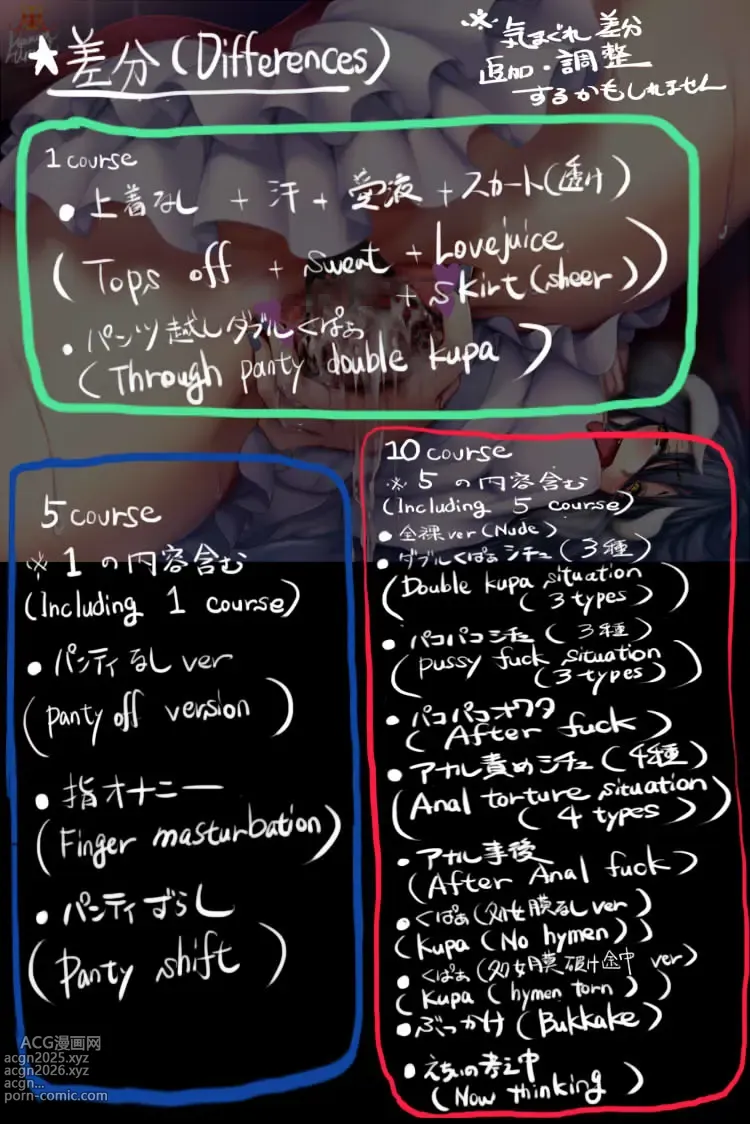 ★差分(Differences)
※気まぐれ差分
追加・調整
するかもしれません
1 course
・上着なし + 汗 + 愛液 + スカート(透け)
(Tops off + sweat + Lovejuice
+ skirt(sheer))
・パンツ越しダブルくぱぁ
(Through panty double kupa)
5 course
※ 1 の内容含む
(Including 1 course)
・パンティなし ver
(panty off version)
・指オナニー
(Finger masturbation)
・パンティずらし
(Panty shift)
10 course
※ 5 の内容含む
(Including 5 course)
・全裸ver(Nude)
・ダブルくぱぁシチュ(3種)
(Double kupa situation
(3 types))
・パコパコシチュ(3種)
(pussy fuck situation
(3 types))
・パコパコオワタ
(After fuck)
・アナル責めシチュ(4種)
(Anal torture situation
(4 types))
・アナル事後
(After Anal fuck)
・くぱぁ(処女膜なし ver)
(Kupa (No hymen))
・くぱぁ(処女膜破け途中 ver)
(Kupa (hymen torn))
・ぶっかけ(Bukkake)
・えちぃの考え中
(Now thinking)
ACG漫画网
acgn2025.xyz
acgn2026.xyz
acgn...
porn-comic.com